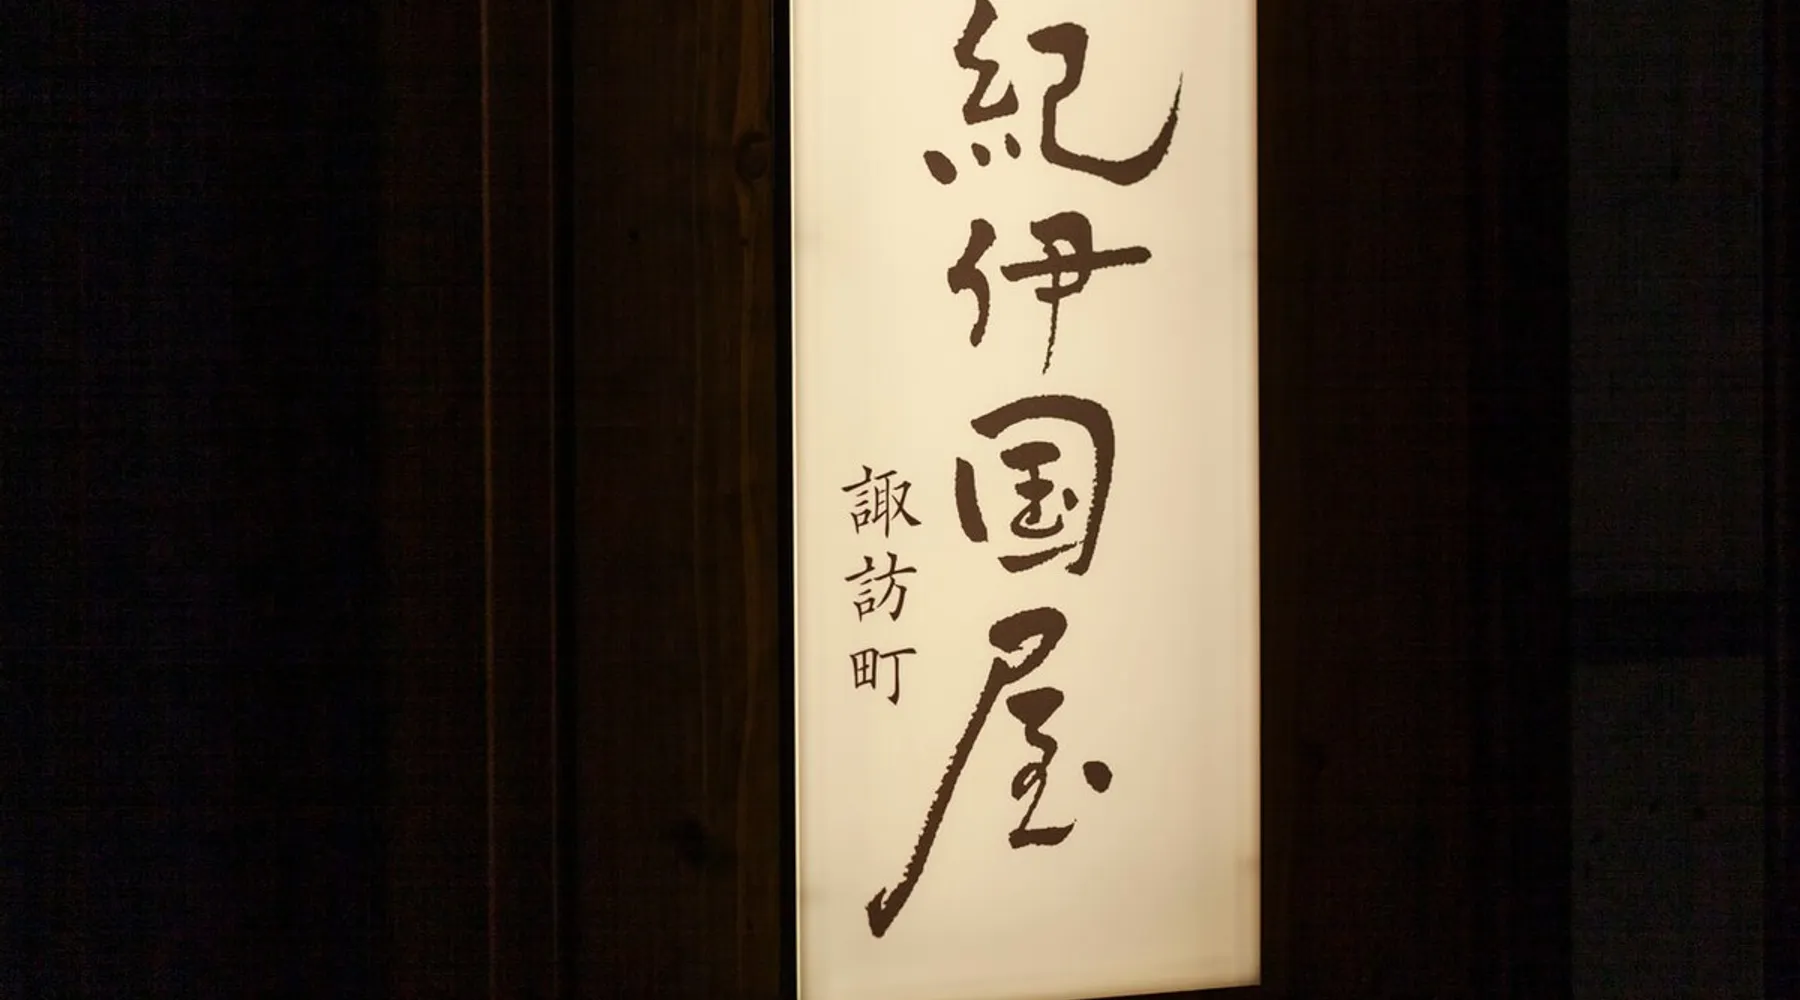 紀伊国屋
諏訪町